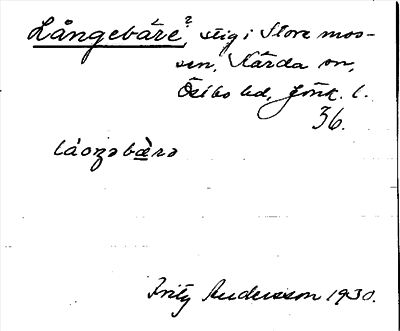 Långebäre?, stig i Store mos-
sen, Kärda sn,
Östbo hd, Jönk. l.
36.
låŋəbæ̀rə
Fritz Andersson 1930.